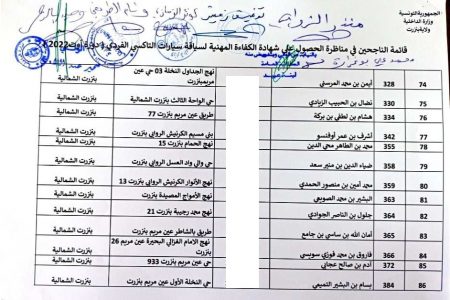 الجمهورية التونسية
وزارة الداخلية
ولاية بنزرت
قائمة الناجحين في مناظرة الحصول على شهادة الكفاءة المهنية لسياقة سيارات التاكسي الفردي (دورة أوت 2022)
74 328 أيمن بن محمد المرسني نهج الجداول النخلة 03 حي عين مريم بنزرت بنزرت الشمالية
75 330 نضال بن الحبيب الزيادي حي الواحة الثالث بنزرت الشمالية بنزرت الشمالية
76 334 هشام بن لطفي بن بركة طريق عين مريم بنزرت 77 بنزرت الشمالية
77 342 أشرف بن عمر أوفنسو بني مسيم الكرنيش الروابي بنزرت بنزرت الشمالية
78 355 محمد بن الطاهر محي الدين نهج الحمام بنزرت 15 بنزرت الشمالية
79 358 ضياء الدين بن منير سعد حي والي واد العسل الروابي بنزرت بنزرت الشمالية
80 359 محمد أمين بن منصور الحمدي نهج الأنوار الكرنيش الروابي بنزرت 13 بنزرت الشمالية
81 363 البشير بن محمد الصويعي نهج الأمواج المصيدة بنزرت بنزرت الشمالية
82 364 جلول بن الناصر الجوادي نهج محمد رجيبة بنزرت 21 بنزرت الشمالية
83 365 أمان الله بن ساسي بن جامع طريق بالشاطر عين مريم بنزرت بنزرت الشمالية
84 366 فاروق بن محمد فوزي سويسي نهج الإمام الغزالي البحيرة عين مريم 26 بنزرت بنزرت الشمالية
85 372 آدم بن صالح عجابي حي عين مريم بنزرت 933 بنزرت الشمالية
86 384 بسام بن البشير التميمي حي النخلة الأول عين مريم بنزرت بنزرت الشمالية